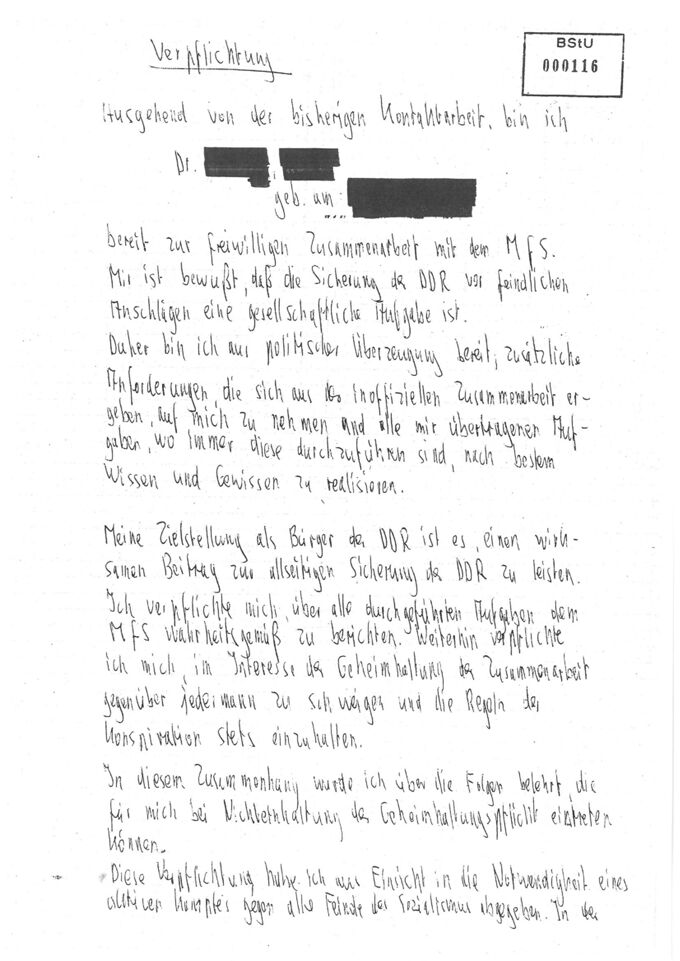 Verpflichtung
BStU
000116
Ausgehend von der bisherigen Kontaktarbeit, bin ich
Dr.
geb. am
bereit zur freiwilligen Zusammenarbeit mit dem MfS.
Mir ist bewußt, daß die Sicherung der DDR vor feindlichen
Anschlägen eine gesellschaftliche Aufgabe ist.
Daher bin ich aus politischer Überzeugung bereit, zusätzliche
Anforderungen, die sich aus der inoffiziellen Zusammenarbeit er-
geben, auf mich zu nehmen und alle mir übertragenen Auf-
gaben, wo immer diese durchzuführen sind, nach bestem
Wissen und Gewissen zu realisieren.
Meine Zielstellung als Bürger der DDR ist es, einen wirk-
samen Beitrag zur allseitigen Sicherung der DDR zu leisten.
Ich verpflichte mich, über alle durchgeführten Aufgaben dem
MfS wahrheitsgemäß zu berichten. Weiterhin verpflichte
ich mich, im Interesse der Geheimhaltung der Zusammenarbeit
gegenüber jedermann zu schweigen und die Regeln der
Konspiration stets einzuhalten.
In diesem Zusammenhang wurde ich über die Folgen belehrt, die
für mich bei Nichteinhaltung der Geheimhaltungspflicht eintreten
können.
Diese Verpflichtung habe ich aus Einsicht in die Notwendigkeit eines
aktiven Kampfes gegen alle Feinde des Sozialismus abgegeben. In der